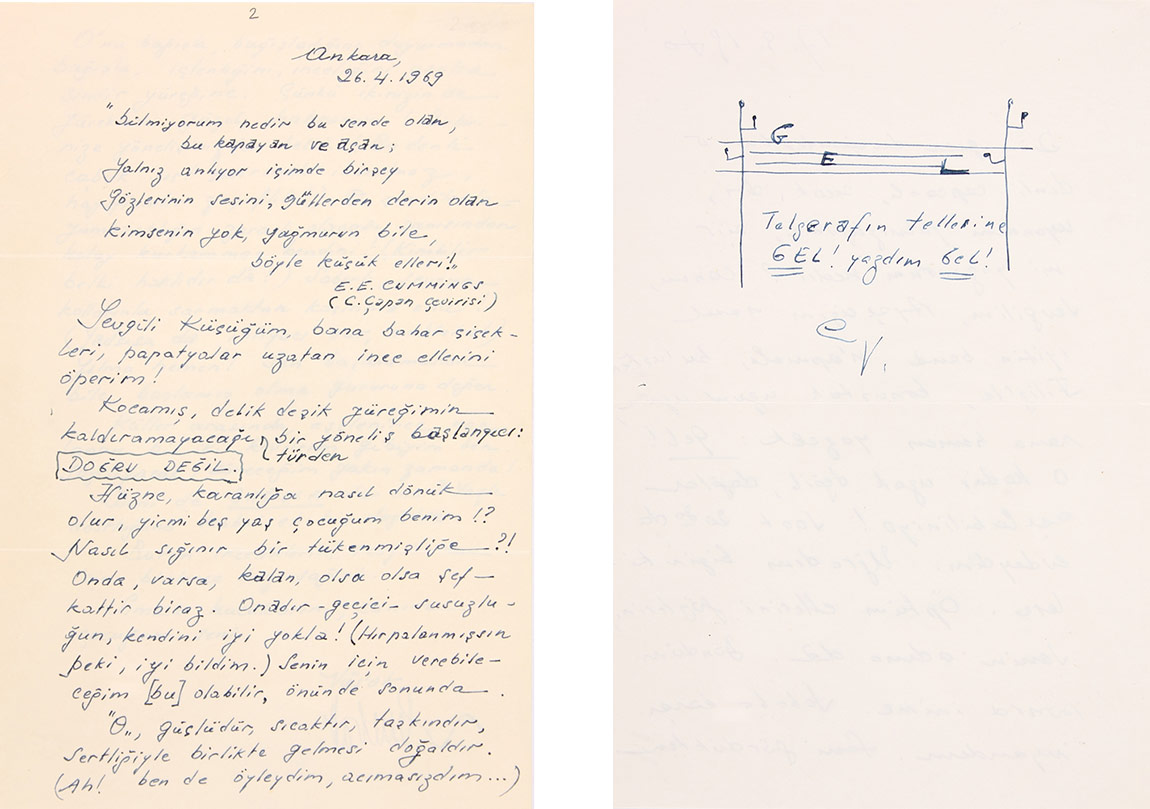 2
Ankara,
26.4.1969
"bilmiyorum nedir bu sende olan,
bu kapayan ve açan;
Yalnız anlıyor içimde birşey
Gözlerinin sesini, güllerden derin olan
kimsenin yok, yağmurun bile,
böyle küçük elleri!"
E.E. CUMMINGS
(C. Çapan Çevirisi)
Sevgili Küçüğüm, bana bahar çiçek-
leri, papatyalar uzatan ince ellerini
öperim!
Kocamış, delik deşik yüreğimin
kaldıramayacağı bir yöneliş başlangıcı:
türden
DOĞRU DEĞİL.
Hüzne, karanlığa nasıl dönük
olur, yirmi beş yaş çocuğum benim!?
Nasıl sığınır bir tükenmişliğe?!
Onda, varsa, kalan, olsa olsa şef-
kattir biraz. Onadır -geçici- susuzlu-
ğun, kendini iyi yokla! (Hırpalanmışsın
peki, iyi bildim.) Senin için verebile-
ceğim [bu] olabilir, önünde sonunda.
"O", güçlüdür, sıcaktır, taşkındır,
Sertliğiyle birlikte gelmesi doğaldır.
(Ah! ben de öyleydim, acımasızdım...)
G
E
L
Telgrafın tellerine
GEL! yazdım GEL!